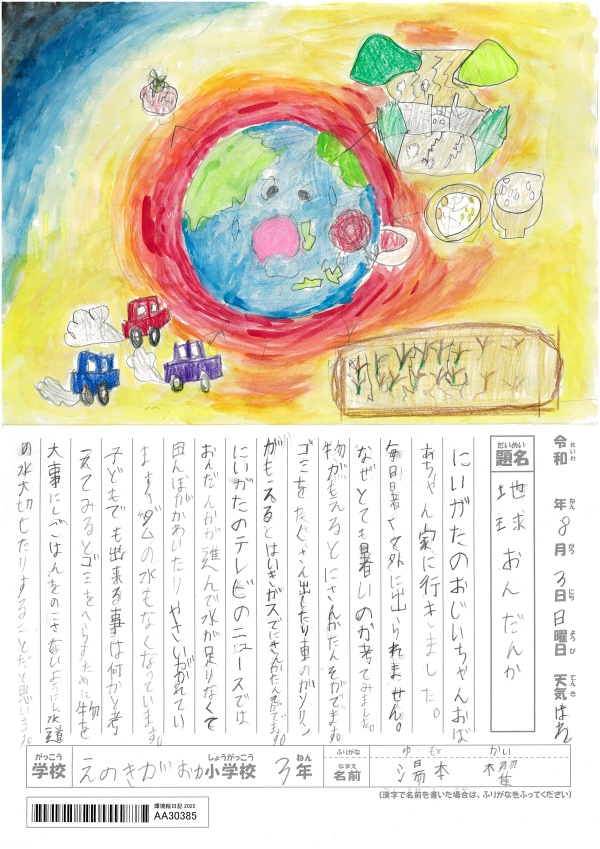 令和 年 8月 3日 日曜日 天気 はれ
れいわ ねん がつ にち ようび てんき
だいめい
題名
地球おんだんか
にいがたのおじいちゃんおば
あちゃん家に行きました。
毎日暑くて外に出られません。
なぜとても暑いのか考てみました。
物がもえるとにさんかたんそがでます。
ゴミをたくさん出したり車のガソリン
がもえるとはいきガスでにさんかたんそがでます。
にいがたのテレビのニュースでは
おんだんかが進んで水が足りなくて
田んぼがかわいたりやさいがかれてい
ます。ダムの水もなくなっています。
子どもでも出来る事は何かと考
えてみるとゴミをへらすために物を
大事にしごはんをのこさないようにし水道
の水大切したりすることだと思います。
がっこう しょうがっこう ねん
学校 えのきがおか小学校 3年
ふりがな ゆもと かい
なまえ
名前 湯本
(漢字で名前を書いた場合は、ふりがなをふってください)
環境絵日記 2025
AA30385